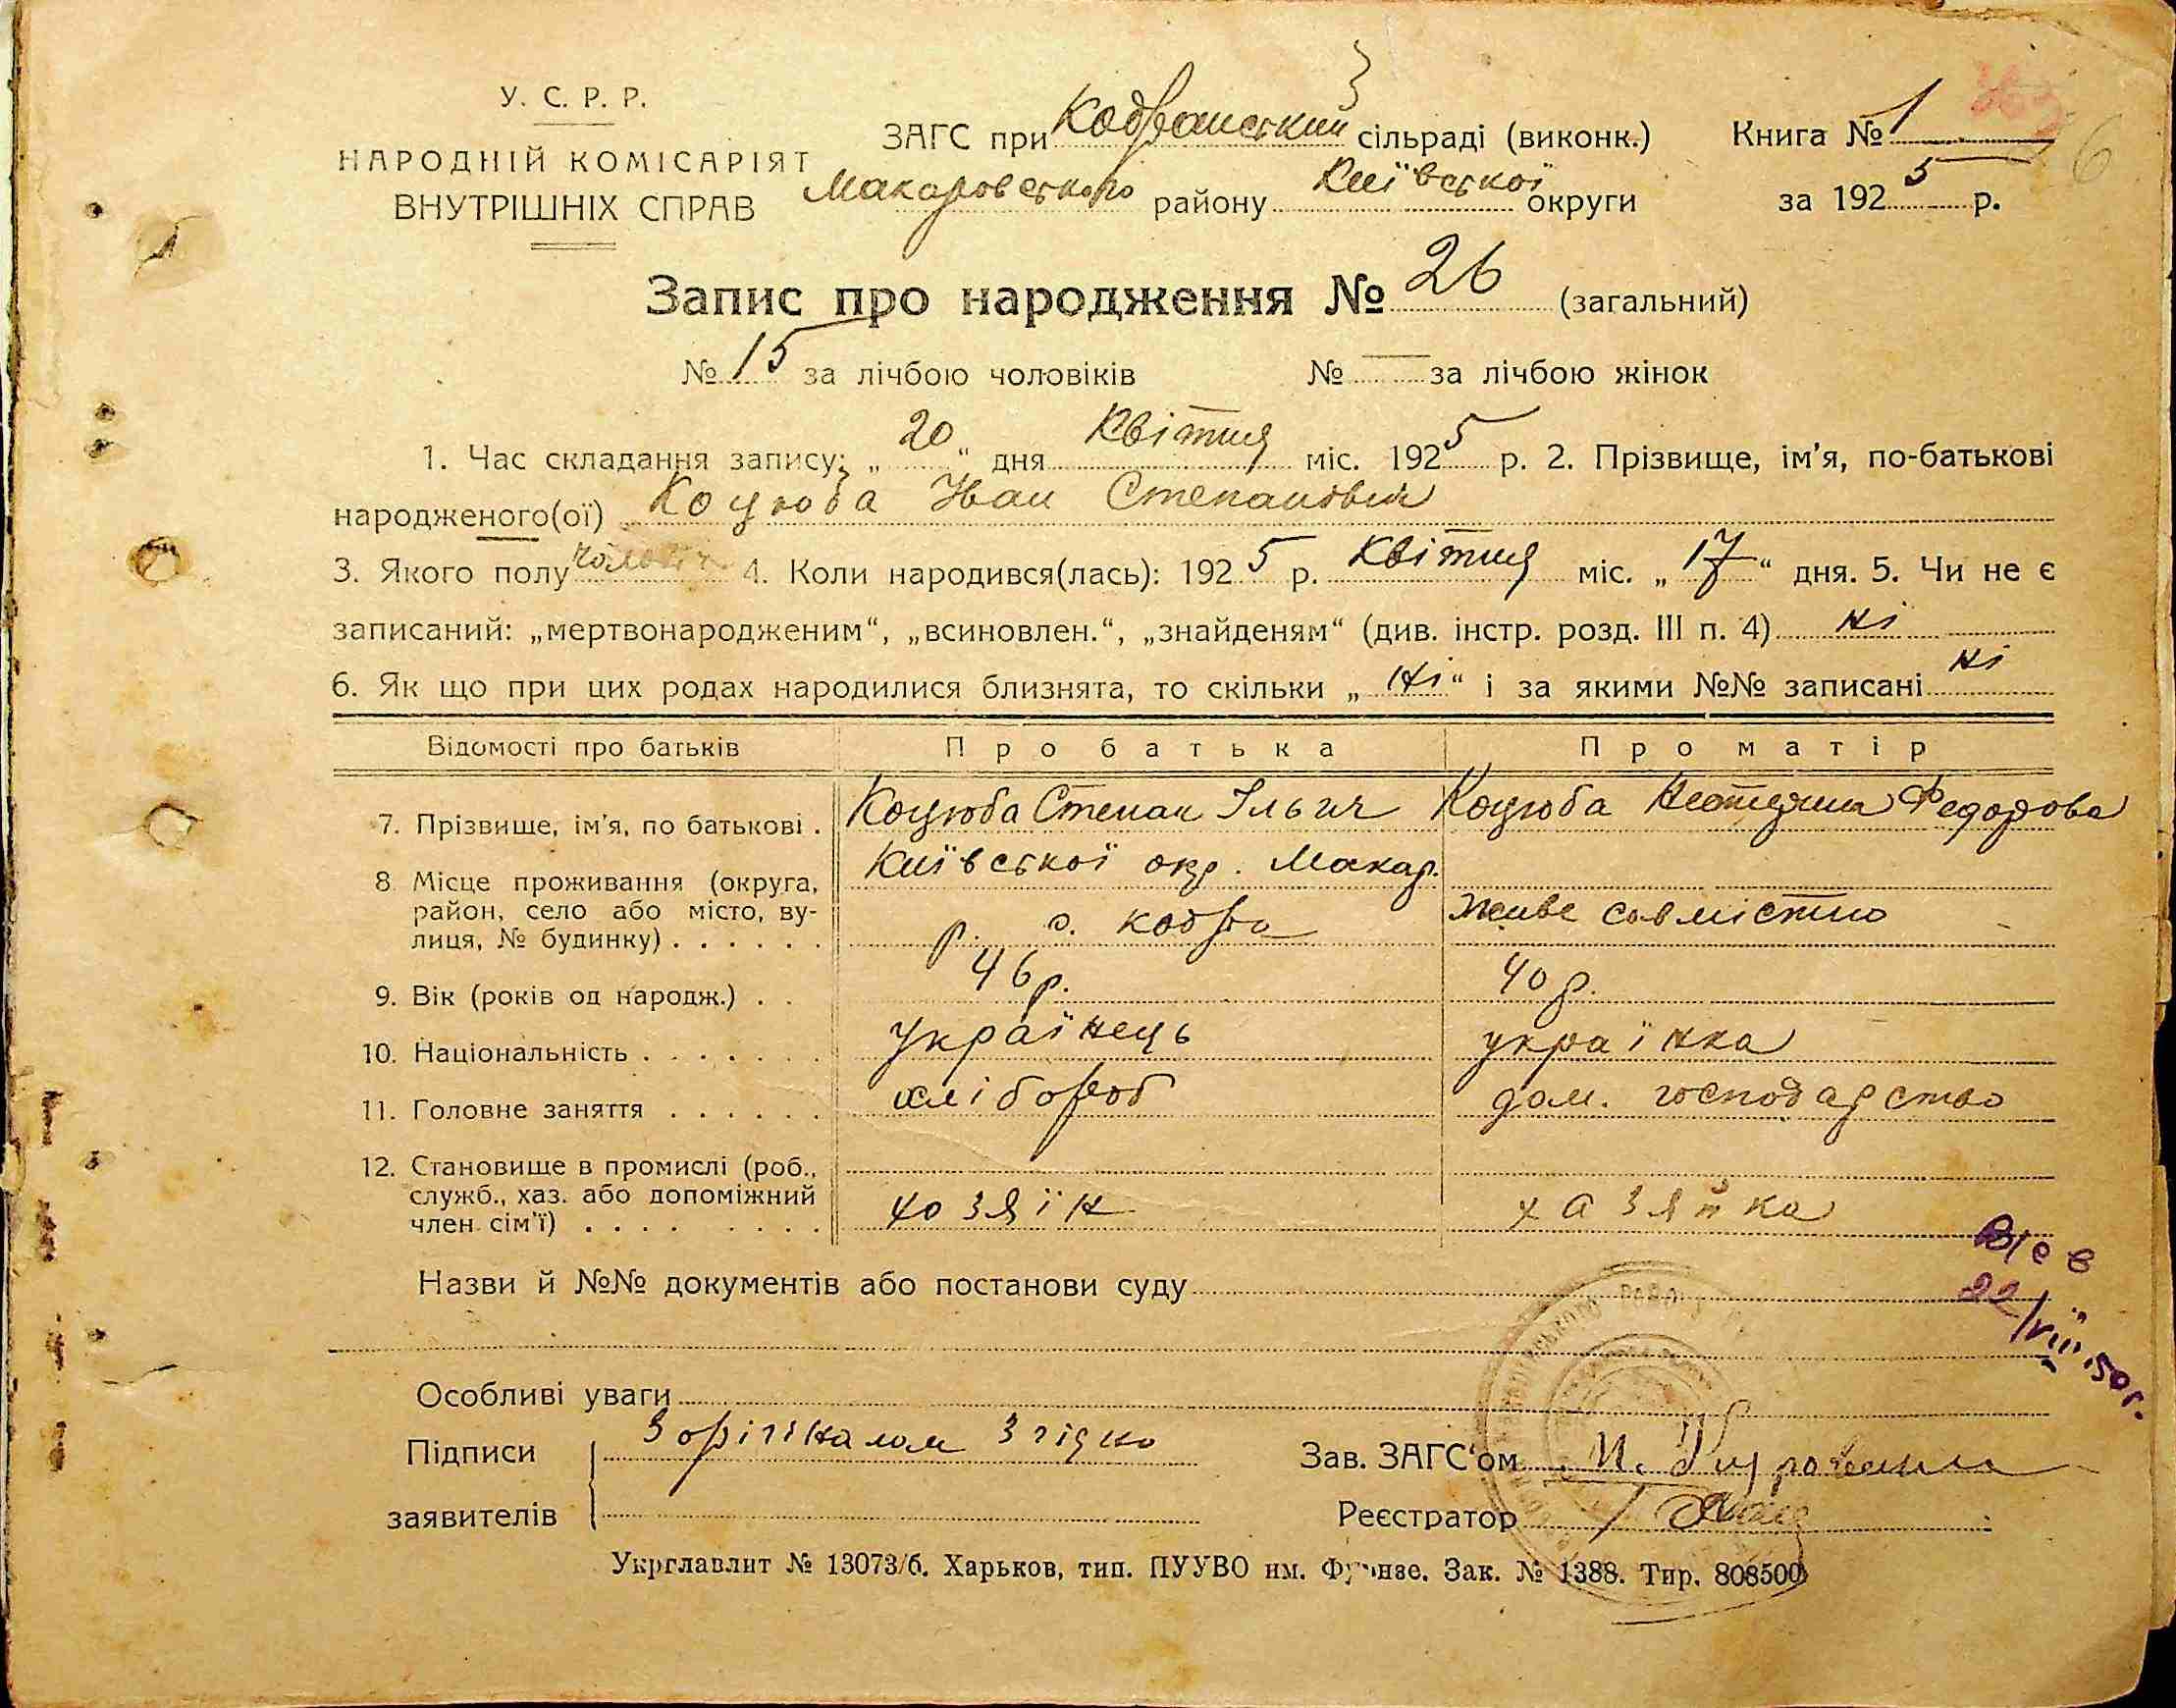 У. С. Р. Р.
НАРОДНІЙ КОМІСАРІЯТ
ВНУТРІШНІХ СПРАВ
ЗАГС при Кодранський сільраді (виконк.) Книга № 1
Макаровського району Київської округи за 1925 р.
Запис про народження № 26 (загальний)
№ 15 за лічбою чоловіків № — за лічбою жінок
1. Час складання запису: „20“ дня Квітня міс. 1925 р. 2. Прізвище, ім’я, по-батькові
народженого(ої) Коцюба Іван Степанович
3. Якого полу чоловіч 4. Коли народився(лась): 1925 р. Квітня міс. „17“ дня. 5. Чи не є
записаний: „мертвонародженим“, „всиновлен.“, „знайденям“ (див. інстр. розд. III п. 4) ні
6. Як що при цих родах народилися близнята, то скільки „ні“ і за якими №№ записані ні
Відомості про батьків Про батька Про матір
7. Прізвище, ім’я, по батькові . Коцюба Степан Ільич Коцюба Федорова
8. Місце проживання (округа, район, село або місто, вулиця, № будинку) . . . . . . Київської окр. Макар.
р. с. Кодра Живе совмістно
9. Вік (років од народж.) . . 46 р. 40 р.
10. Національність . . . . . . українець українка
11. Головне заняття . . . . . . хлібороб дом. господарство
12. Становище в промислі (роб., служб., хаз. або допоміжний член сім’ї) . . . . . . . . хозяїн хазяйка
Назви й №№ документів або постанови суду
22/VIII 50г.
Особливі уваги
Підписи З орігіналом згідно Зав. ЗАГС‘ом
заявителів Реєстратор
Укрглавлит № 13073/б. Харьков, тип. ПУУВО им. Фрунзе. Зак. № 1388. Тир. 808500